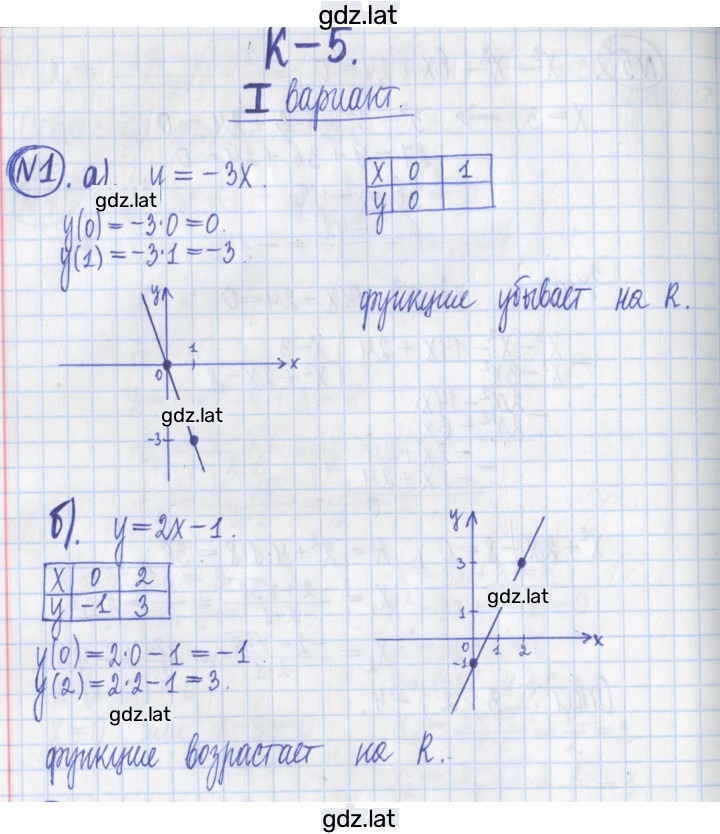 gdz.lat
К-5.
I вариант.
№1. а). y = -3x.
x 0 1
y 0
gdz.lat
y(0) = -3·0 = 0.
y(1) = -3·1 = -3.
функцие убывает на R.
y
1
0
x
gdz.lat
-3
б). y = 2x - 1.
x 0 2
y -1 3
y(0) = 2·0 - 1 = -1.
y(2) = 2·2 - 1 = 3.
gdz.lat
y
3
gdz.lat
1
0 1 2 x
-1
функцие возрастает на R.
gdz.lat